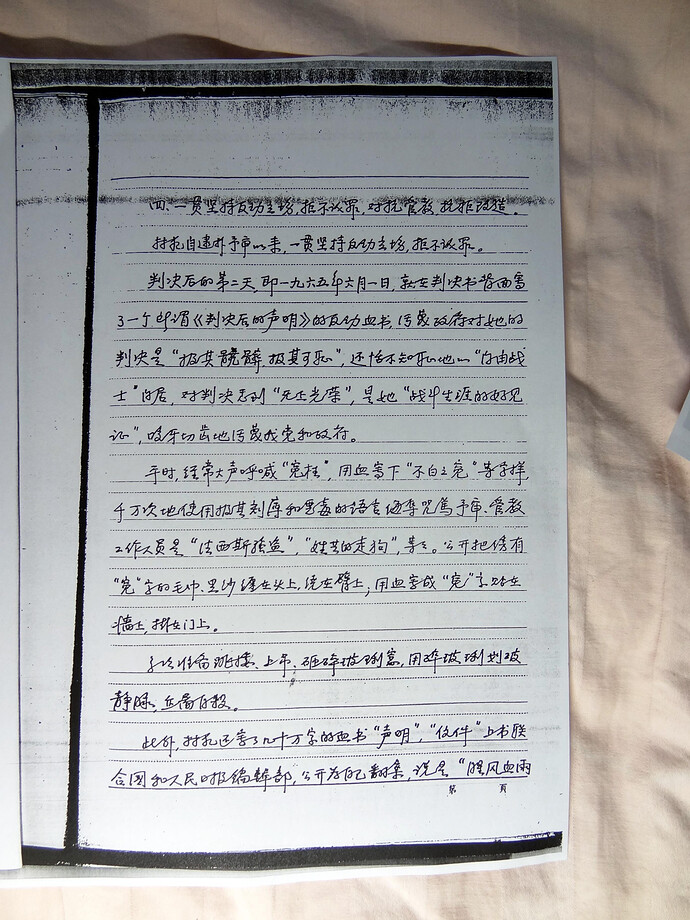 四、一贯坚持反动立场，拒不认罪，对抗管教，抗拒改造。
林犯自逮捕予审以来，一贯坚持反动立场，拒不认罪。
判决后的第二天，即一九六五年六月一日，就在判决书背面写
了一个所谓《判决后的声明》的反动血书，污蔑政府对她的
判决是“极其骯髒，极其可耻”，还恬不知耻地以“自由战
士”自居，对判决感到“无上光荣”，是她“战斗生涯的好见
证”，咬牙切齿地污蔑我党和政府。
平时，经常大声呼喊“冤枉”，用血写下“不白之冤”等字样，
千万次地使用极其刻薄和恶毒的语言侮辱咒骂予审、管教
工作人员是“法西斯强盗”，“姓共的走狗”，等等。公开把绣有
“冤”字的毛巾、黑纱缠在头上，绕在臂上，用血写成“冤”字贴在
墙上，掛在门上。
多次准备跳楼、上吊、砸碎玻琍窗，用碎玻琍划破
静脉，企图自殺。
此外，林犯还写了几十万字的血书“声明”，“信件”上书联
合国和人民日报编辑部，公开为自己翻案，说是“腥风血雨
第 页